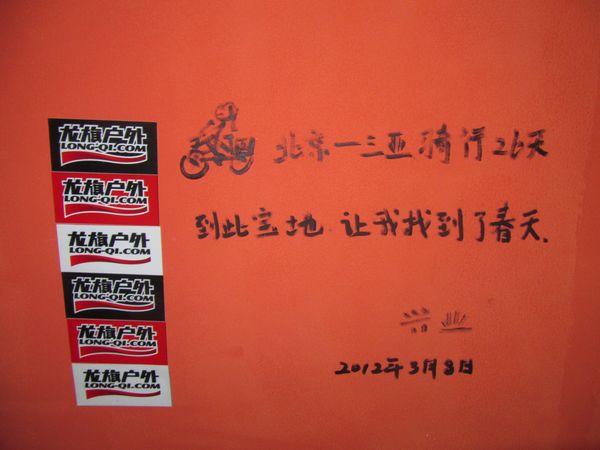 龙旗户外
LONG-QI.COM
龙旗户外
LONG-QI.COM
龙旗户外
LONG-QI.COM
龙旗户外
LONG-QI.COM
龙旗户外
LONG-QI.COM
龙旗户外
LONG-QI.COM
北京一三亚骑行26天
到此宝地 让我找到了春天.
2012年3月8日